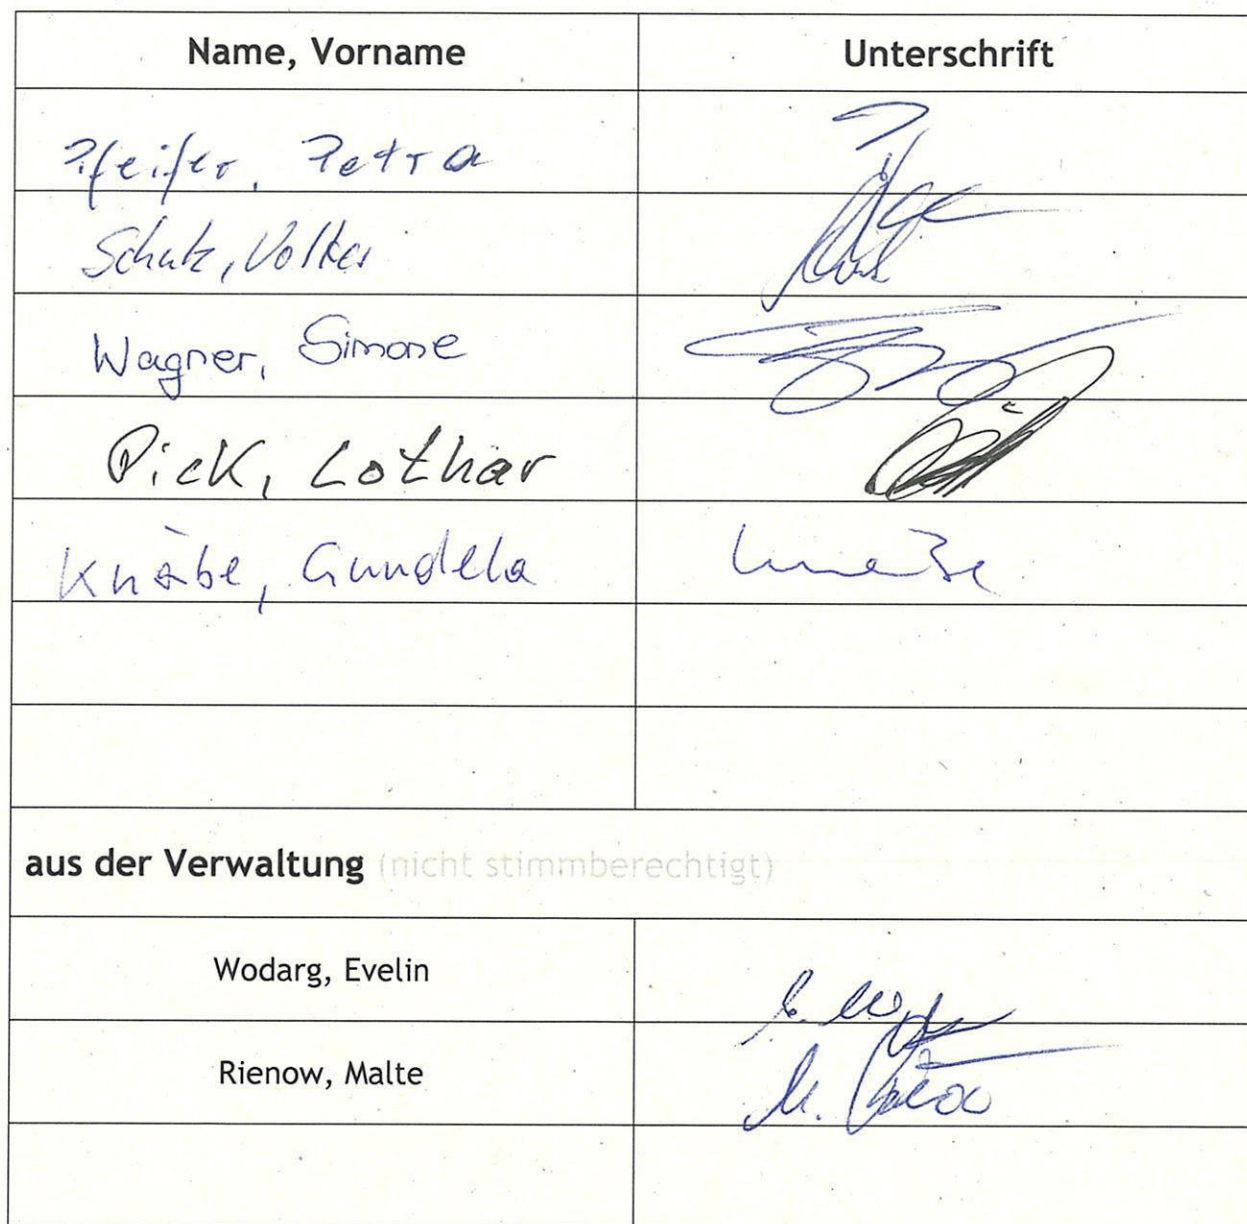 Name, Vorname Unterschrift
Pfeifer, Petra
Volker
Wagner, Simone
Pick, Lothar
Knäbe, Gundela
aus der Verwaltung (nicht stimmberechtigt)
Wodarg, Evelin
Rienow, Malte